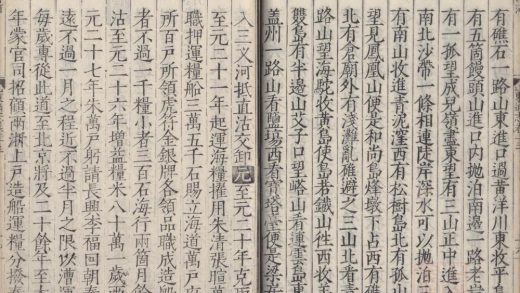 有礁石一路山東進口過黃洋川東收平島
有五箇饅頭山進口內拋泊南邊一路老岸
有一孤望成兒嶺盡東望有三山正中進
南北沙帶一條相連陡岸深水可以拋泊三
有南山收進靑泥窪西有松樹島北有孤山
望見鳳凰山便是和尚島烽墩下占西有
北有倉廟外有淺灘亂礁避之三山北看靑
路山望海駝收黃島使島若鐵山徃西收
雙島有半邊山艾子口望塔山看連雲島
盖州一路山看鹽塲西有寶塔臺便是梁
入三叉河抵直沽交卸元至元二十年克
至元二十一年起運海糧擢用朱淸張瑄
職押運糧船三萬五千石賜立海道萬戶
所百戶所領虎符金銀牌各領品職成造
者不過一千糧小者三百石海行兩箇月餘
沽至元二十六年增益糧米八十萬一歲兩
元二十七年朱萬戶躬請長興李福回朝奏
遠不過一月之程近不過半月之限以漕運
每歲專從此道至北京將及二十餘年至
年官司招顧兩浙上戶造船運糧分撥春